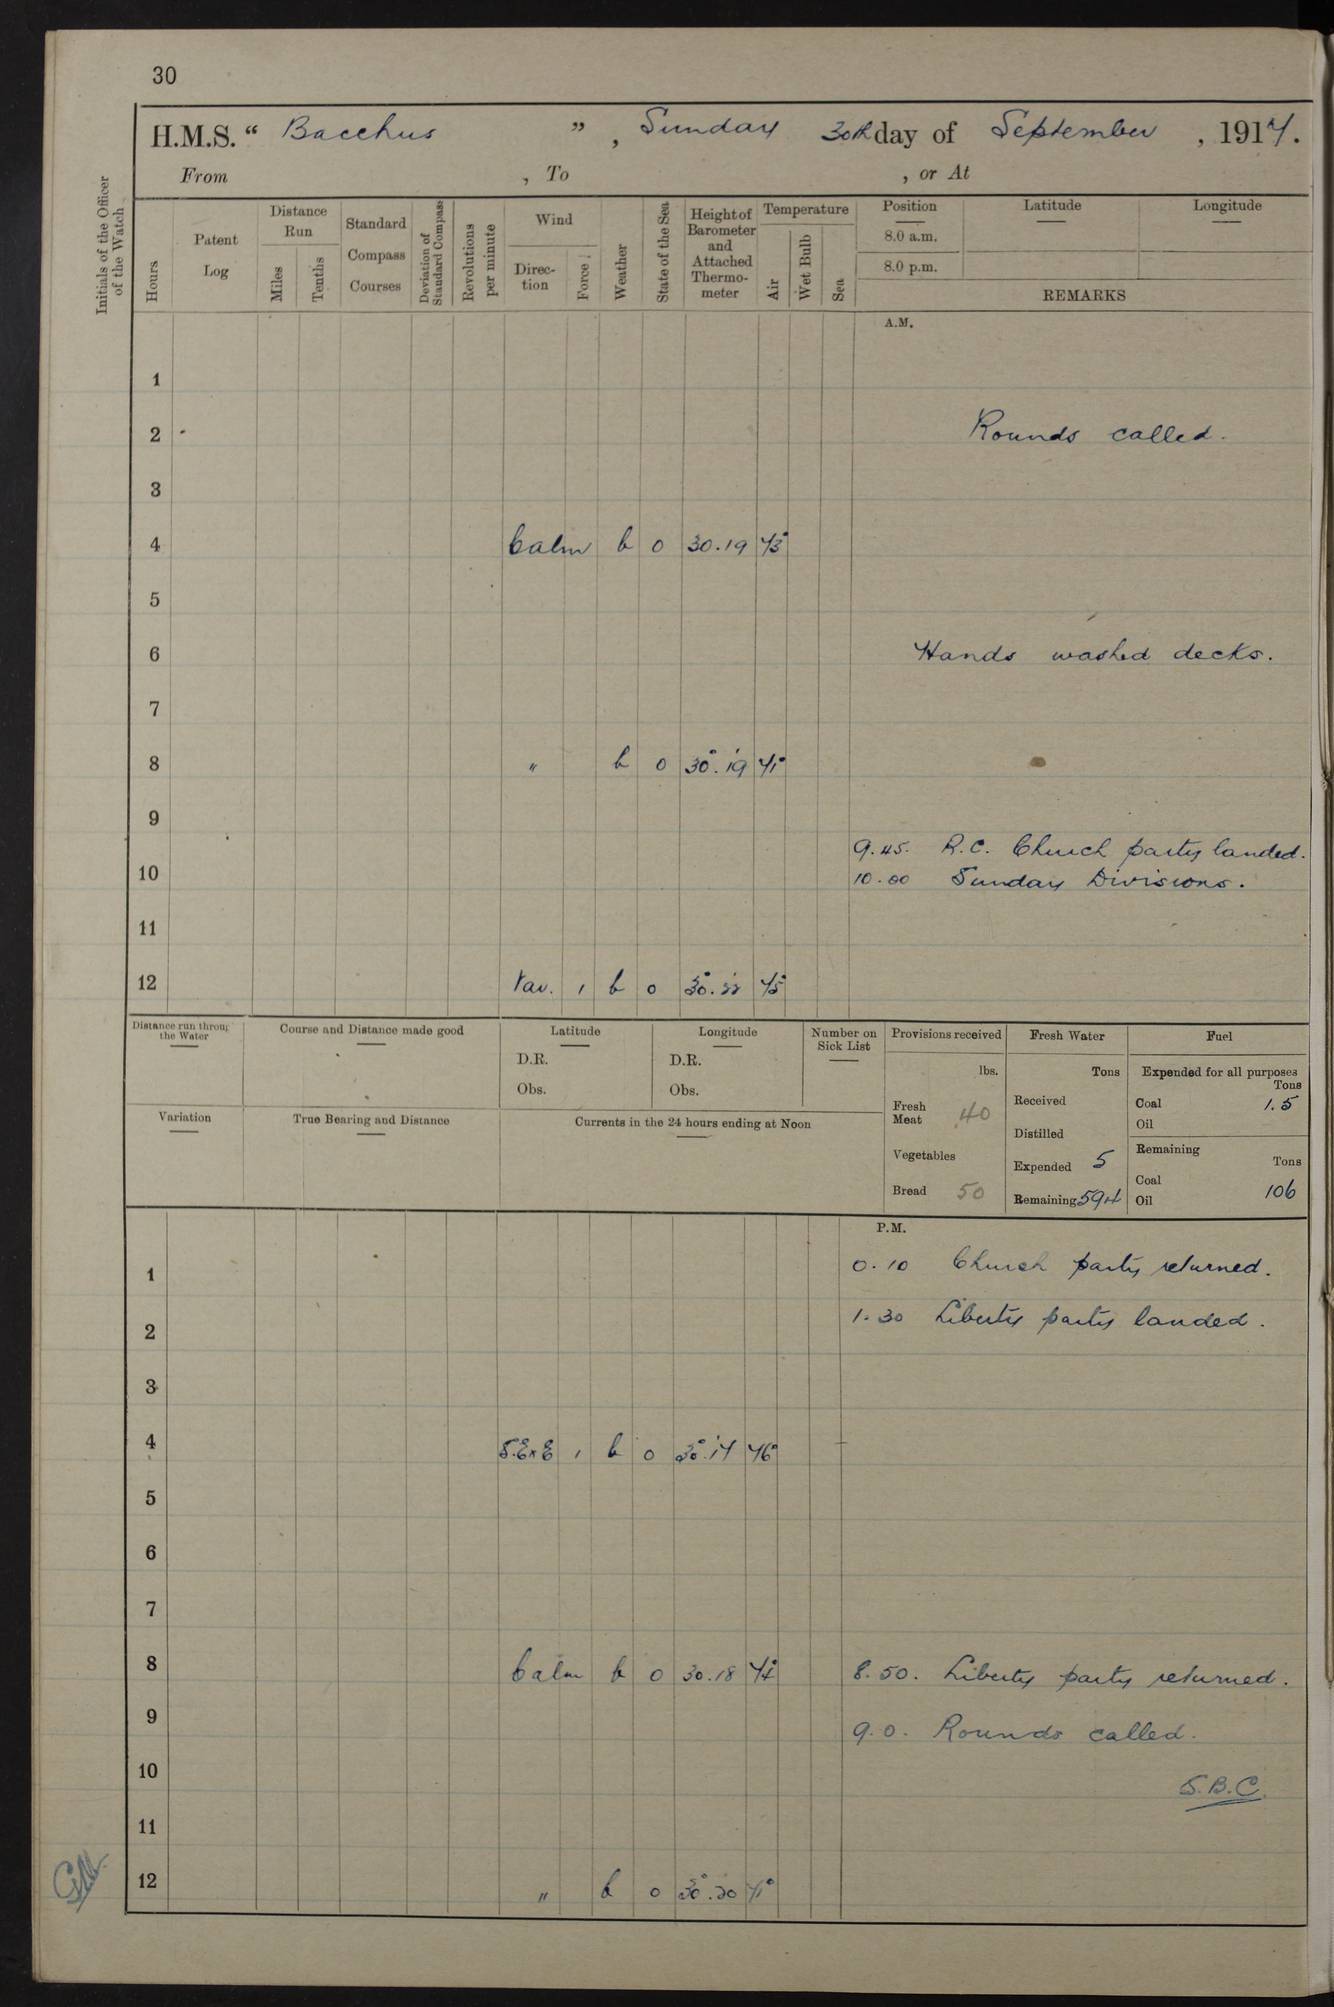 30
H.M.S. “ Bacchus ” , Sunday 30th day of September , 1917.
From , To , or At
Initials of the Officer of the Watch
Hours
Patent Log
Distance Run
Miles
Tenths
Standard Compass Courses
Deviation of Standard Compass
Revolutions per minute
Wind
Direc- tion
Force
Weather
State of the Sea
Height of Barometer and Attached Thermo- meter
Temperature
Air
Wet Bulb
Sea
Position
8.0 a.m.
8.0 p.m.
Latitude
Longitude
REMARKS
A.M.
1
2 Rounds called.
3
4 Calm b 0 30.19 73°
5
6 Hands washed decks.
7
8 " b 0 30.19 71°
9
9.45. R.C. Church party landed.
10 10.00 Sunday Divisions.
11
12 Var. 1 b 0 30.22 75°
Distance run through the Water
Course and Distance made good
Latitude
D.R.
Obs.
Longitude
D.R.
Obs.
Number on Sick List
Provisions received
lbs.
Fresh Meat 40
Vegetables
Bread 50
Fresh Water
Tons
Received
Distilled
Expended 5
Remaining 594
Fuel
Expended for all purposes
Tons
Coal 1.5
Oil
Remaining
Tons
Coal 106
Oil
Variation
True Bearing and Distance
Currents in the 24 hours ending at Noon
P.M.
1 0.10 Church party returned.
2 1.30 Liberty party landed.
3
4 S.E x E 1 b 0 30.17 76°
5
6
7
8 Calm b 0 30.18 8.50. Liberty party returned.
9 9.0. Rounds called.
10 S.B.C.
11
12 " b 0 30.20 71°